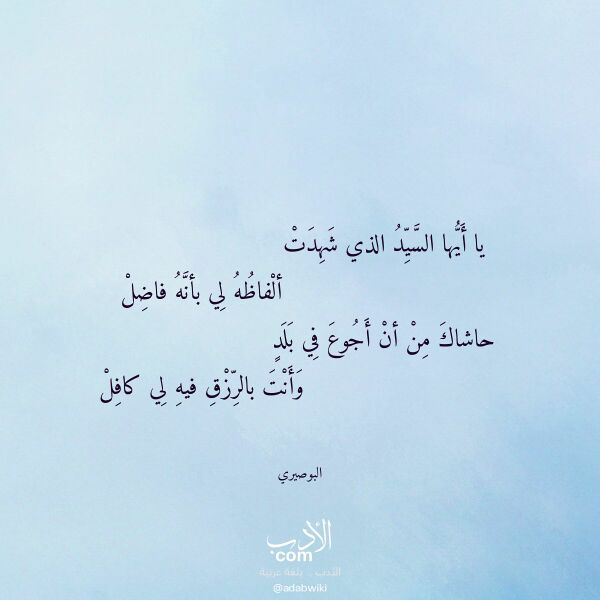 يا أَيُّها السَّيِّدُ الذي شَهِدَتْ
ألْفاظُهُ لِي بأنَّهُ فاضِلْ
حاشاكَ مِنْ أنْ أَجُوعَ فِي بَلَدٍ
وَأَنْتَ بالرِّزْقِ فيهِ لِي كافِلْ
البوصيري
الأدب
com
الأدب .. بلغة عربية
@adabwiki